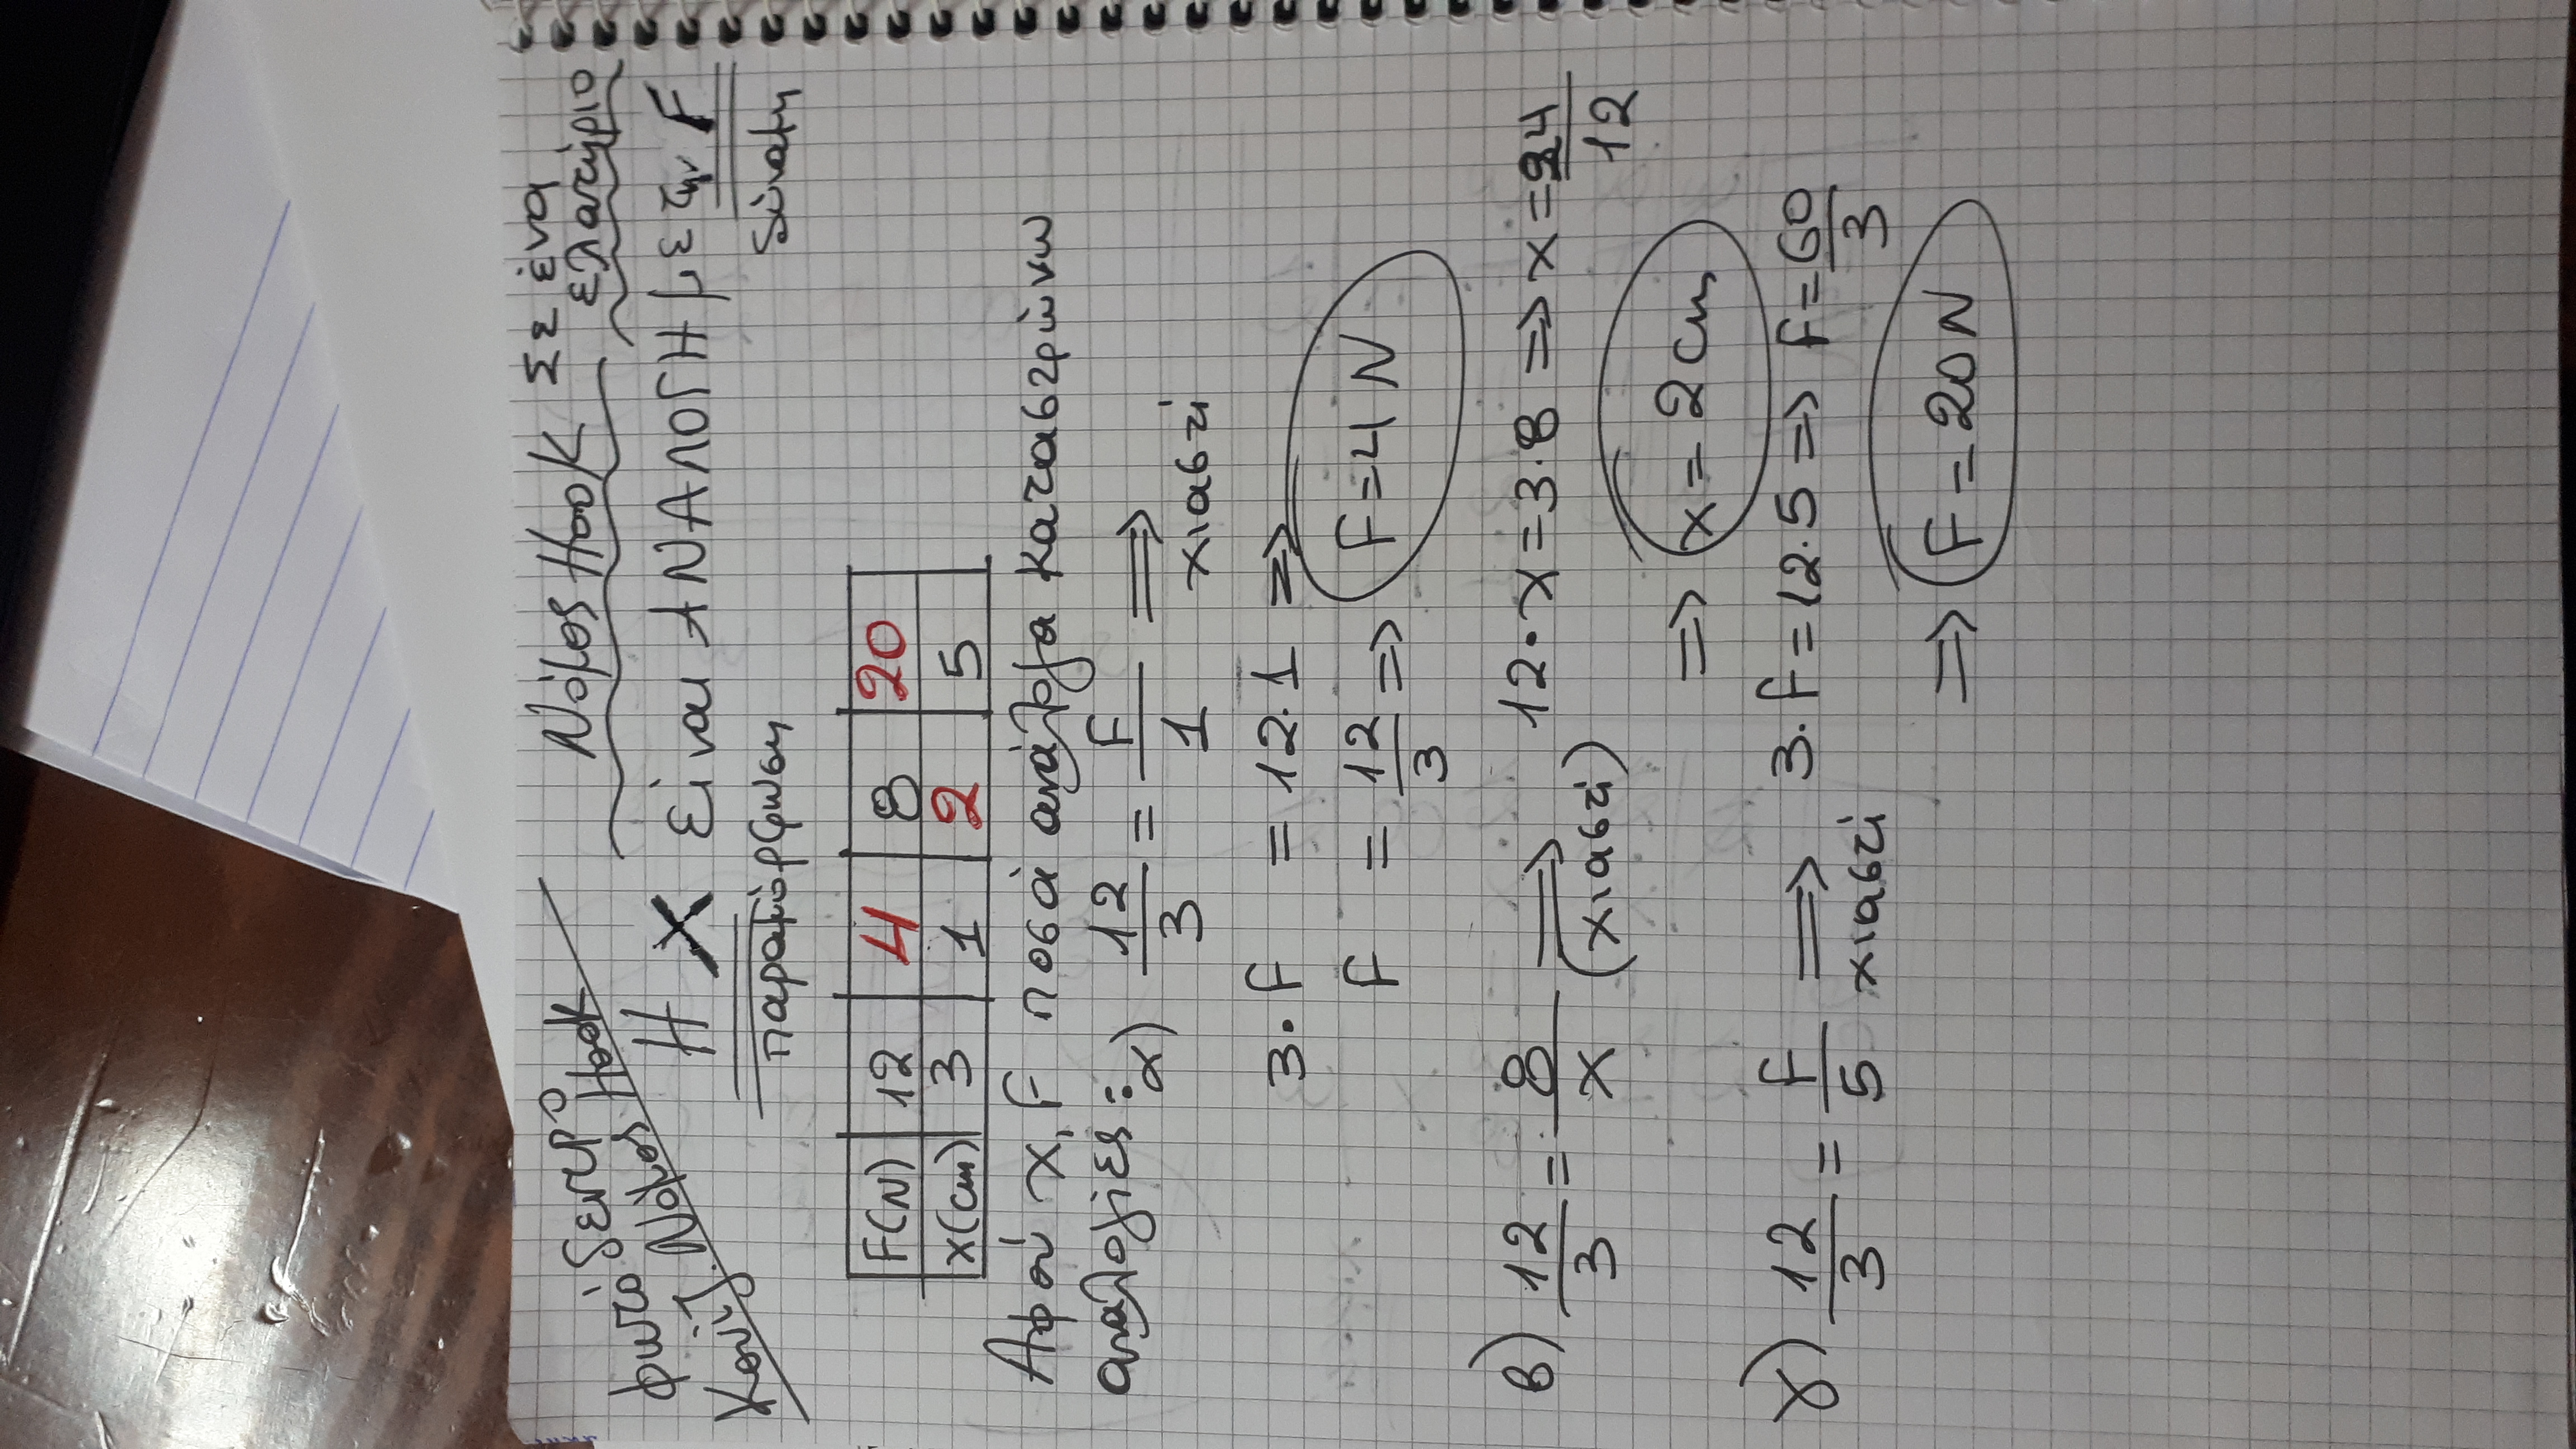 Νόμος Hook Σε ένα
ελατήριο
Η X είναι ΑΝΑΛΟΓΗ με την F
παραμόρφωση δύναμη
F(N) 12 4 8 20
x(cm) 3 1 2 5
Αφού x, F ποσά ανάλογα καταστρώνω
αναλογίες:
α) 12/3 = F/1 ⟹ χιαστί
3·F = 12·1 ⟹
F = 12/3 ⟹ F=4N
β) 12/3 = 8/x ⟹ (χιαστί) 12·x=3·8 ⟹ x=24/12
⟹ x=2cm
γ) 12/3 = F/5 ⟹ χιαστί 3·F=12·5 ⟹ F=60/3
⟹ F=20N